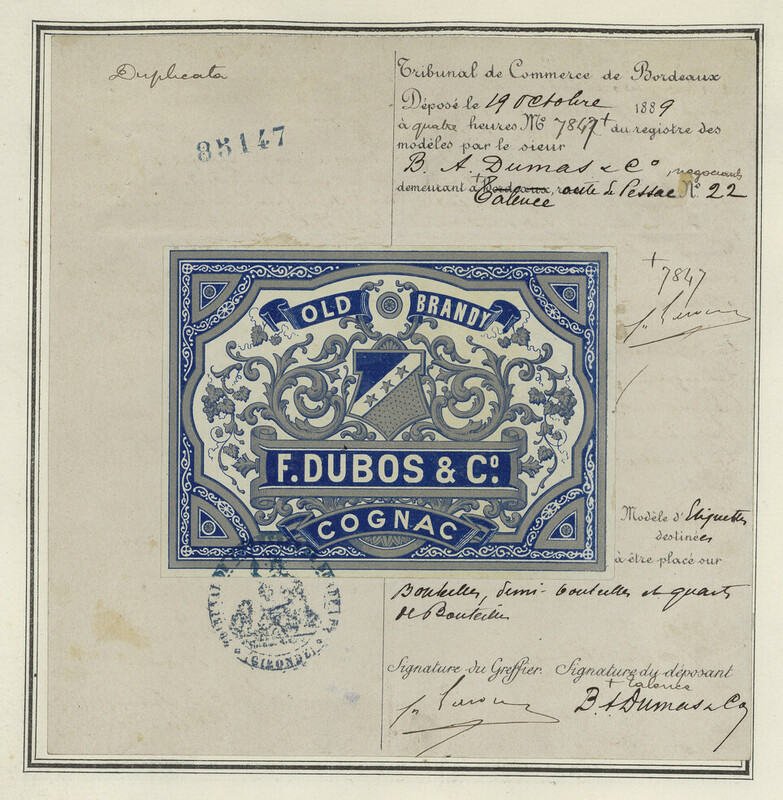 Duplicata
85147
Tribunal de Commerce de Bordeaux
Déposé le 19 Octobre 1889
à quatre heures No 7847 + du registre des
modèles par le sieur
B. A. Dumas & Co, negociants
demeurant à + Bordeaux, route de Pessac No 22
Talence
+ 7847
OLD BRANDY
F. DUBOS & Co.
COGNAC
Modèle d'Etiquettes
destinées
à être placé sur
Bouteilles, demi-bouteilles et quarts
de Bouteilles
GIRONDE
Signature du Greffier. Signature du déposant
+ Talence
B. A. Dumas & Co